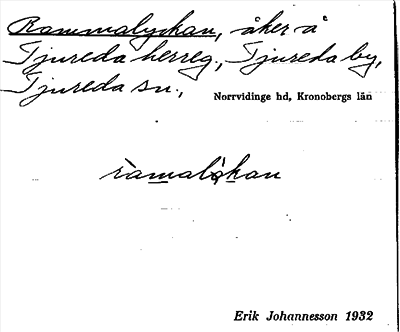 Rammalyckan, åker å
Tjureda herreg., Tjureda by,
Tjureda sn.,
Norrvidinge hd, Kronobergs län
Erik Johannesson 1932